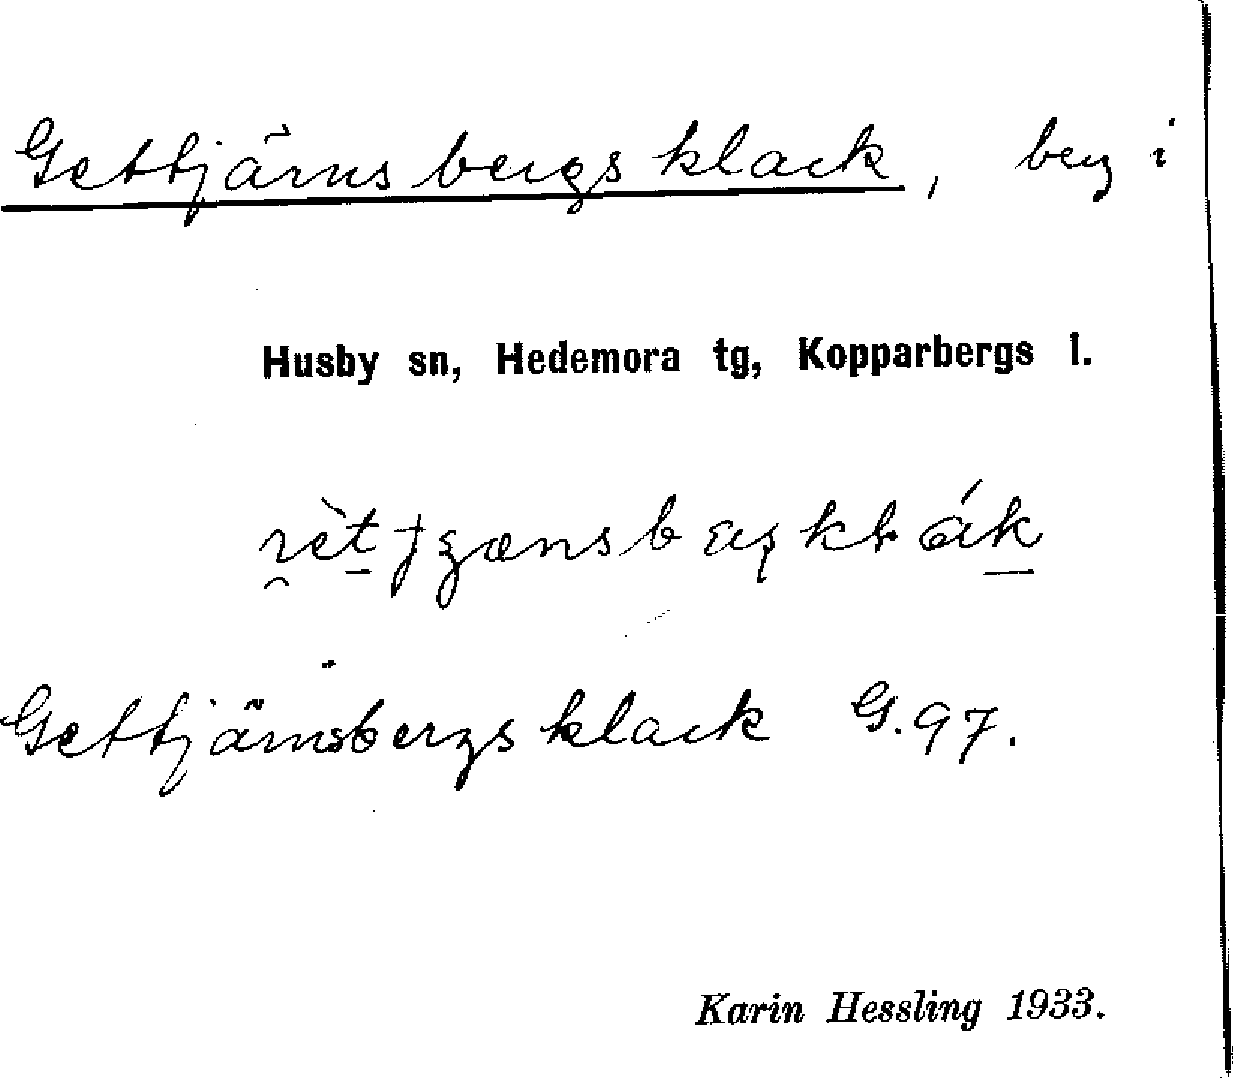 Gettjärnsbergsklack, berg i
Husby sn, Hedemora tg, Kopparbergs l.
Gettjärnsbergsklack G. 97.
Karin Hessling 1933.